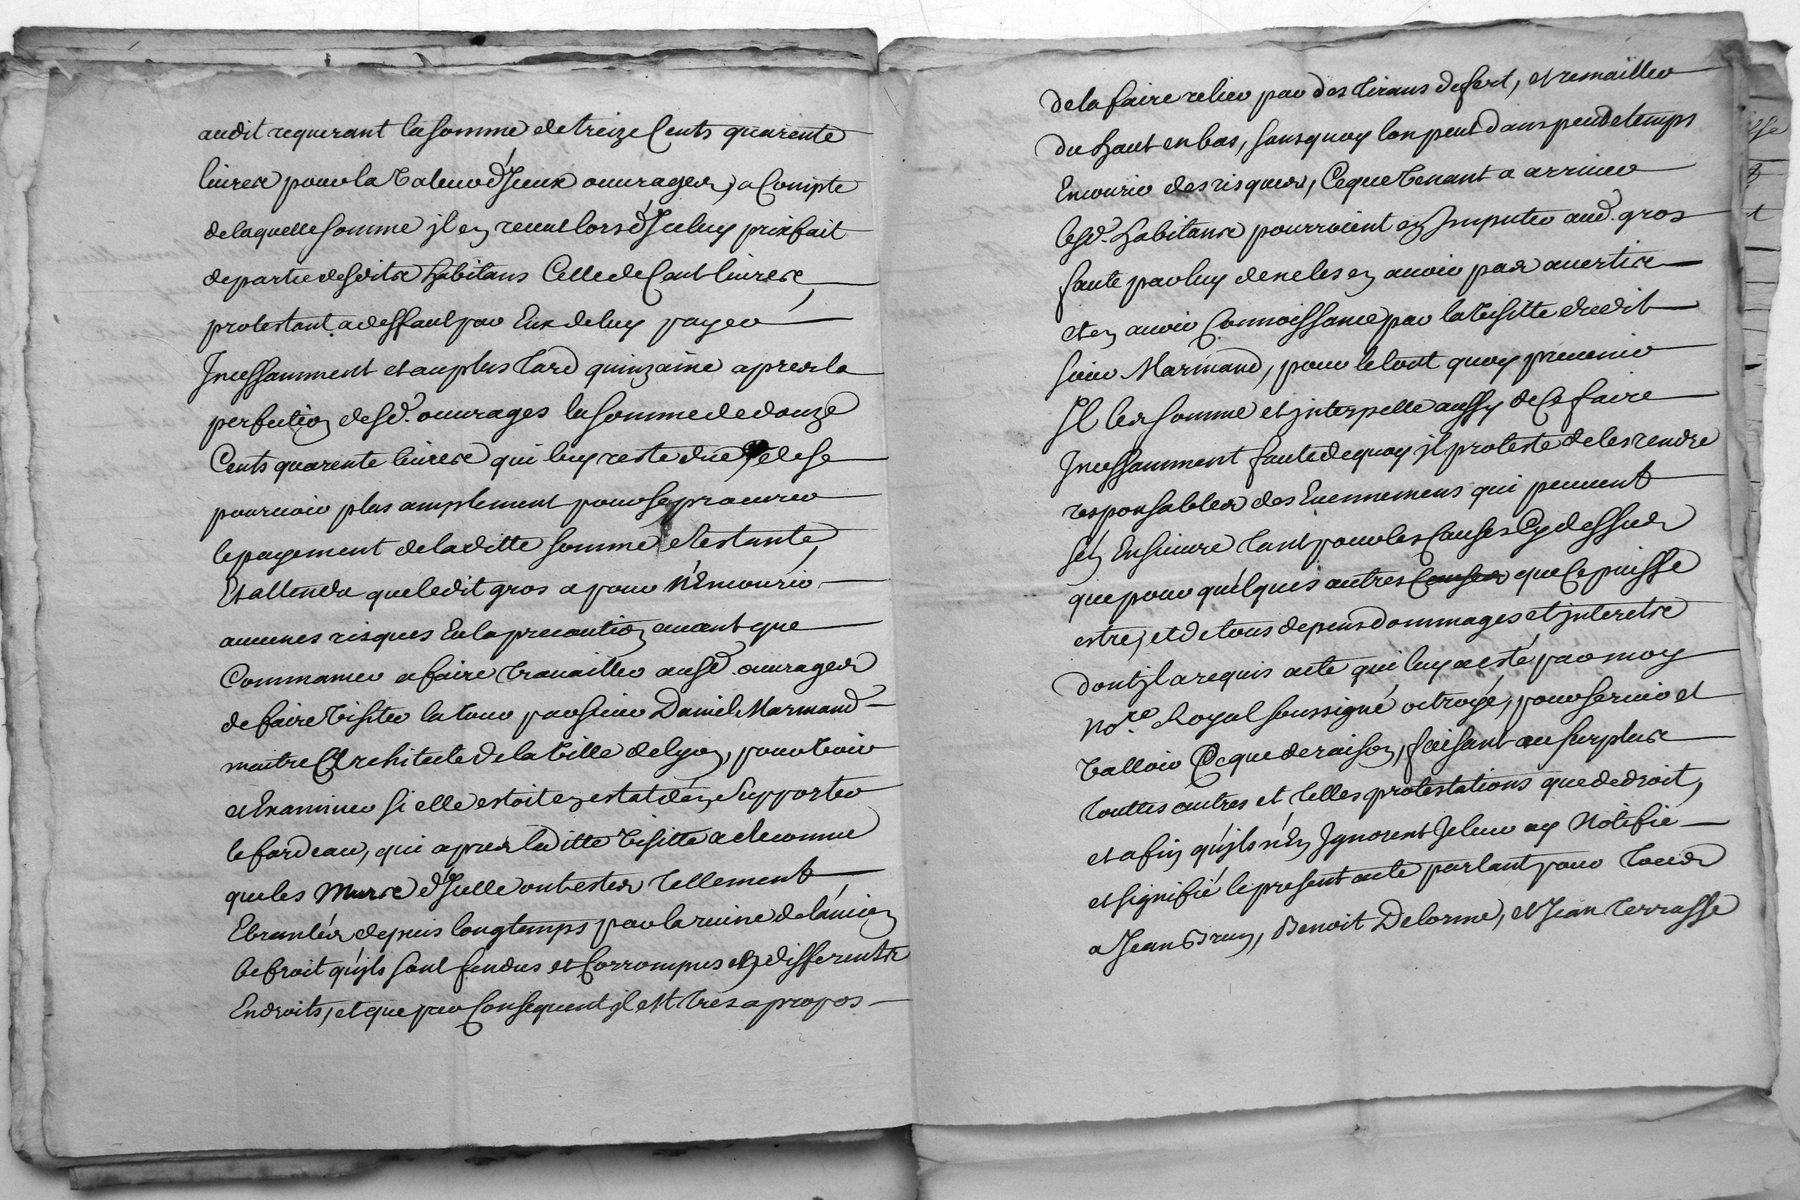 audit requerant la somme de treize Cents quarente
livres pour la valeur d'Iceux ouvrages, a Compte
de laquelle somme il en receut lors d'Iceluy prixfait
de partie desdits habitans Celle de Cent livres
protestant a deffaut par Eux de luy payer
Incessamment et au plus tard quinzaine apres la
perfection desd. ouvrages la somme de douze
Cents quarente livres qui luy reste düe, de se
pourvoir plus amplement pour se procurer
le payement de laditte somme restante,
Et attendu que ledit gros a pour n'Encourir
aucunes risques Eu la precaution avant que
Commancer a faire travailler ausd. ouvrages
de faire visiter la tour par sieur Daniel Marmand
maitre Architecte de la ville de Lyon, pour voir
et Examiner si elle estoit en estat d'en Supporter
le fardeau, qui apres laditte visitte a reconnu
que les Murs d'Icelle ont estés tellement
Ebranlés depuis longtemps par la ruine de l'ancien
befroit qu'ils sont fendus et Corrompus en differents
Endroits, et que par Consequent il est tres a propos
de la faire relier par des tirans de fert, et remailler
du haut en bas, sans quoy l'on peut dans peu de temps
Encourir des risques, Ce que venant a arriver
lesd. habitans pourroient en Imputer aud. gros
faute par luy de ne les en avoir pas avertis
et en avoir Connoissance par la visitte dudit
sieur Marmand, pour le tout quoy prevenir
Il les somme et interpelle aussy de Ce faire
Incessamment faute de quoy il proteste de les rendre
responsables des Evennemens qui peuvent
s'en Ensuivre tant pour les Causes Cy dessus
que pour quelques autres Causes que Ce puisse
estre, et de tous depens dommages et interets
dont il a requis acte qui luy a esté par moy
no.re Royal soussigné octroyé, pour servir et
valloir Ce que de raison, faisant au surplus
touttes autres et telles protestations que de droit,
et afin qu'ils n'En Ignorent Je leur ay Notifié
et signifié le present acte parlant pour tous
a Jean Brun, Benoit Delorme, et Jean Terrasse